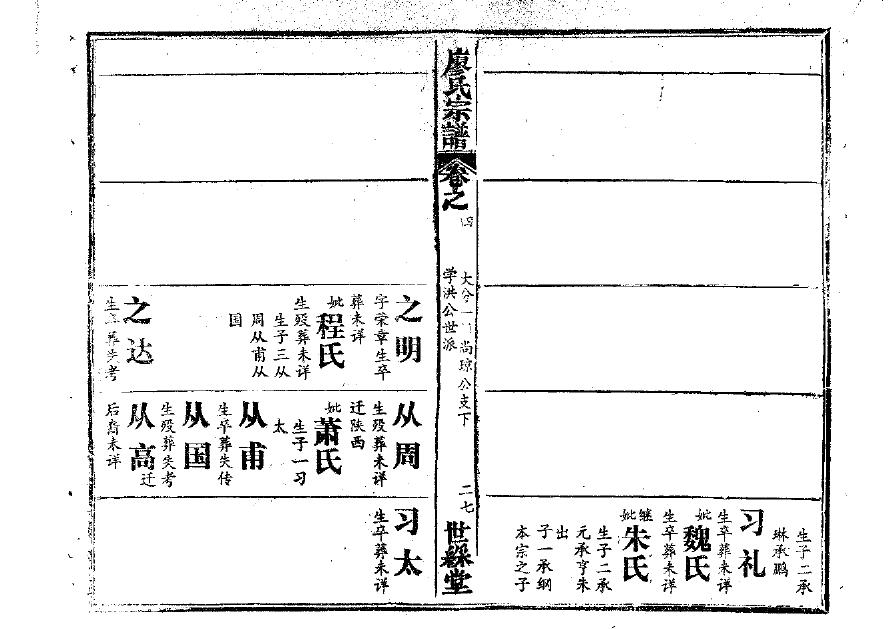 生子二承
琳承鹏
习礼
生卒葬未详
妣
魏氏
生卒葬未详
继妣
朱氏
生子二承
元承亨朱
出
子一承纲
本宗之子
廖氏宗譜
卷之四
尚琼公支下
学洪公世派
二七
世綵堂
之明
字荣章生卒
葬未详
妣
程氏
生殁葬未详
生子三从
周从甫从
国
之达
从周
生殁葬未详
迁陕西
妣
萧氏
生子一习
太
从甫
生卒葬失传
从国
生殁葬失考
从高
迁
后裔未详
习太
生卒葬未详